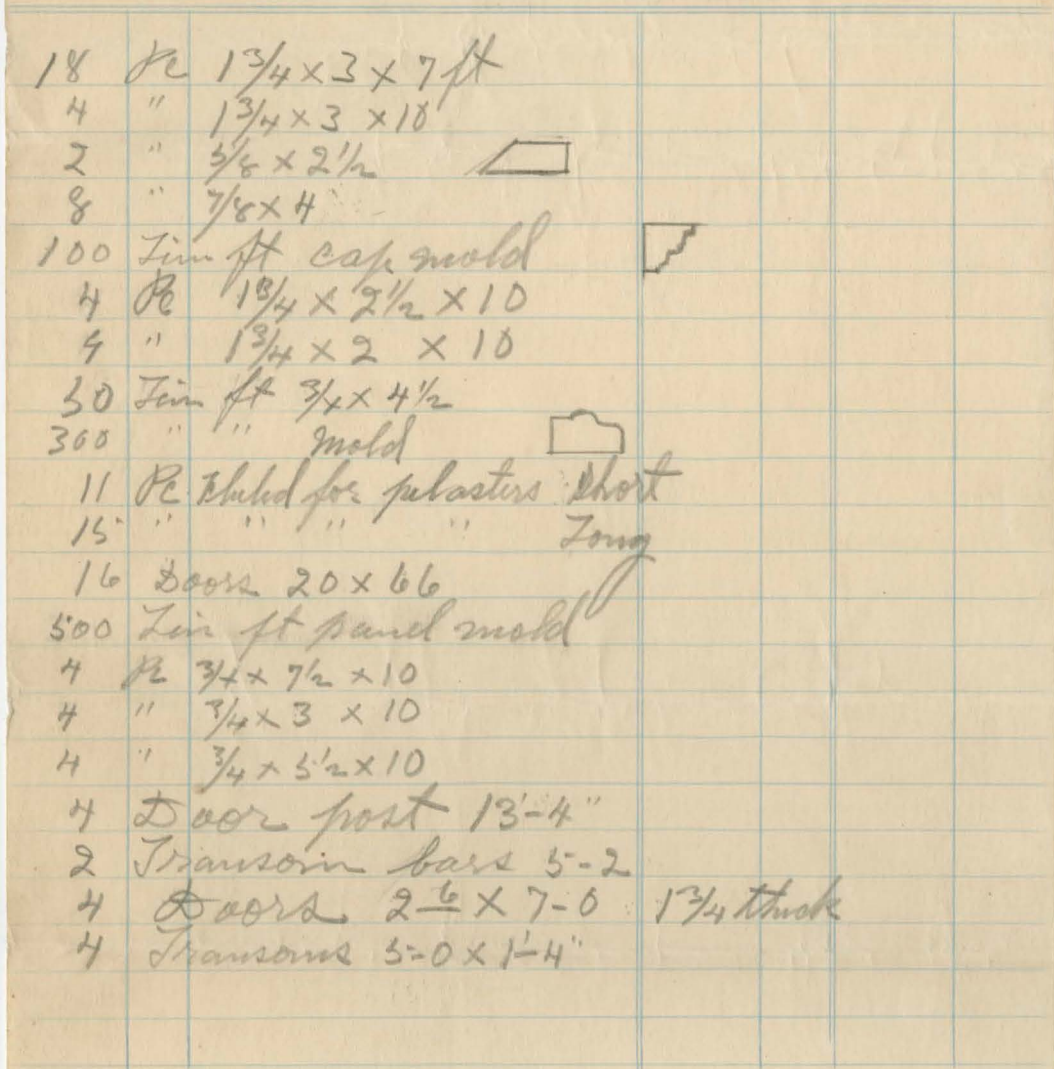 18 Pc 1 3/4 x 3 x 7 ft
4 " 1 3/4 x 3 x 10
2 " 5/8 x 2 1/2
8 " 7/8 x 4
100 Lin ft cap mold
4 Pc 1 3/4 x 2 1/2 x 10
4 " 1 3/4 x 2 x 10
30 Lin ft 3/4 x 4 1/2
300 " " mold
11 Pc for pelasters Short
15 " " " " Long
16 Doors 20 x 66
500 Lin ft panel mold
4 Pc 3/4 x 7 1/2 x 10
4 " 3/4 x 3 x 10
4 " 3/4 x 5 1/2 x 10
4 Door post 13'-4"
2 Transom bars 5-2
4 Doors 2-6 x 7-0 1 3/4 thick
4 Transoms 5-0 x 1'-4"